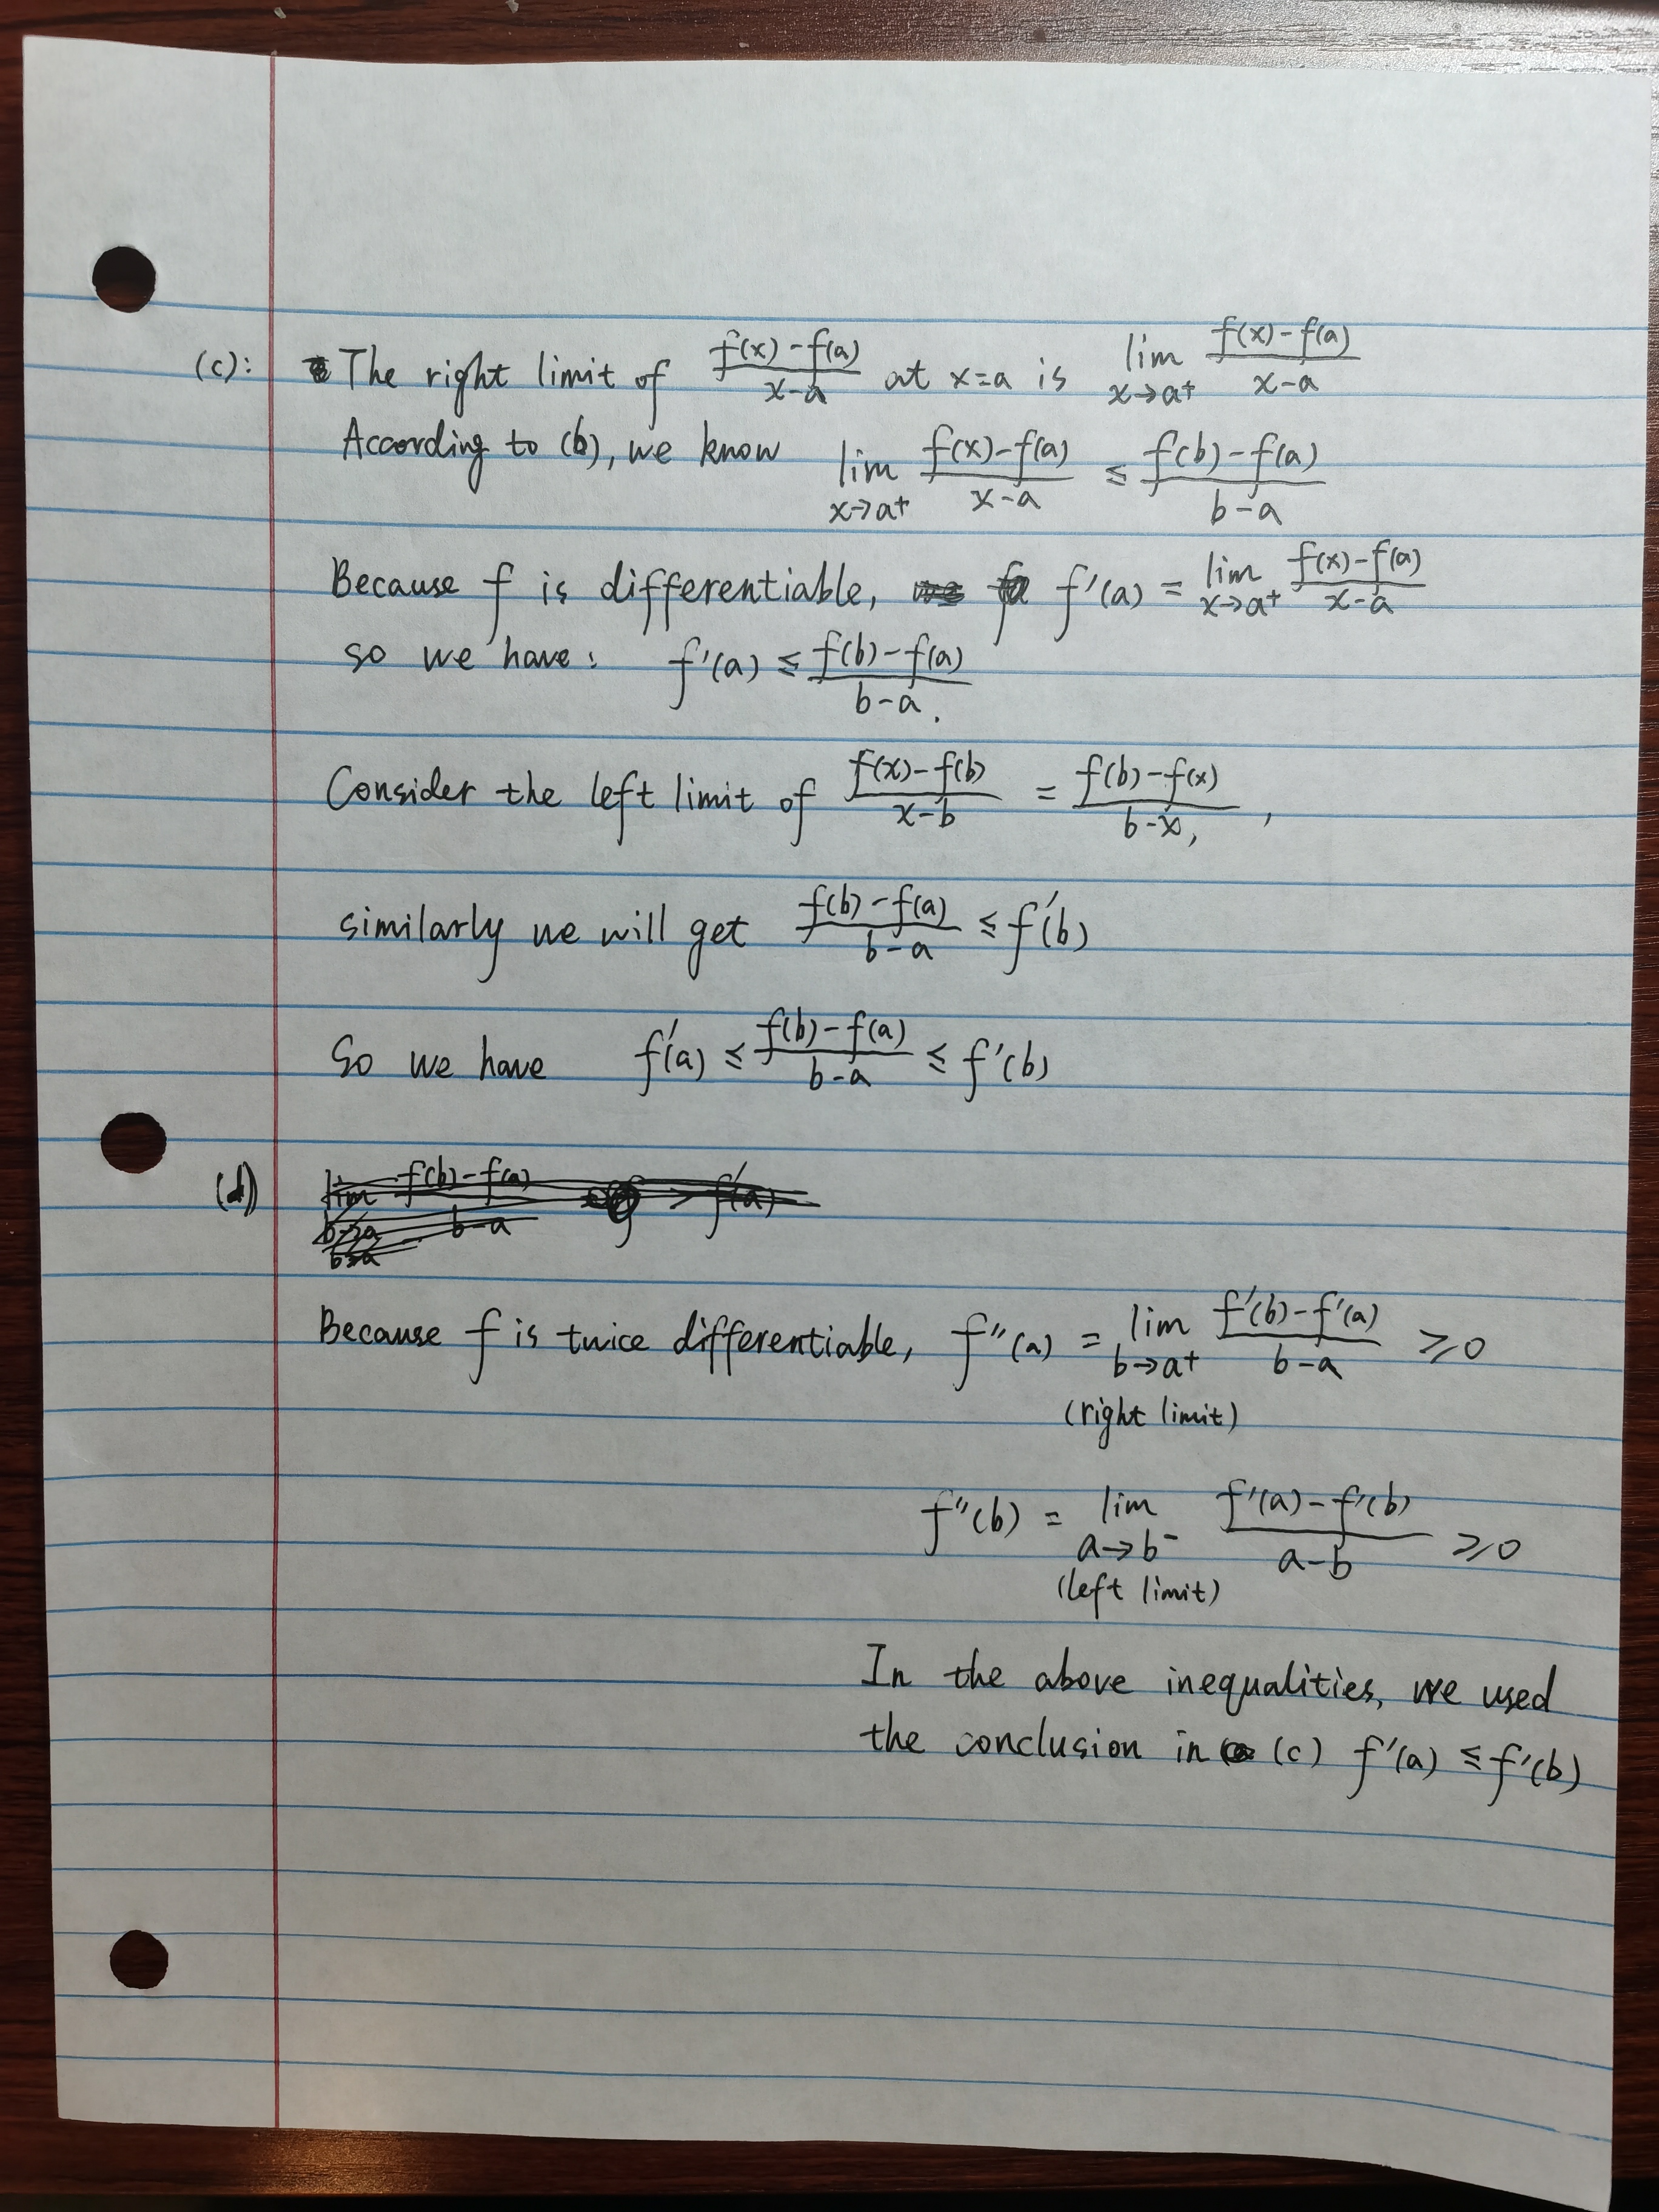 (c): The right limit of (f(x)-f(a))/(x-a) at x=a is lim_{x→a+} (f(x)-f(a))/(x-a)
According to (b), we know lim_{x→a+} (f(x)-f(a))/(x-a) ≤ (f(b)-f(a))/(b-a)
Because f is differentiable, f'(a) = lim_{x→a+} (f(x)-f(a))/(x-a)
so we have: f'(a) ≤ (f(b)-f(a))/(b-a).
Consider the left limit of (f(x)-f(b))/(x-b) = (f(b)-f(x))/(b-x),
similarly we will get (f(b)-f(a))/(b-a) ≤ f'(b)
So we have f'(a) ≤ (f(b)-f(a))/(b-a) ≤ f'(b)
(d)
Because f is twice differentiable, f''(a) = lim_{b→a+} (f'(b)-f'(a))/(b-a) ≥ 0
(right limit)
f''(b) = lim_{a→b-} (f'(a)-f'(b))/(a-b) ≥ 0
(left limit)
In the above inequalities, we used
the conclusion in (c) f'(a) ≤ f'(b)